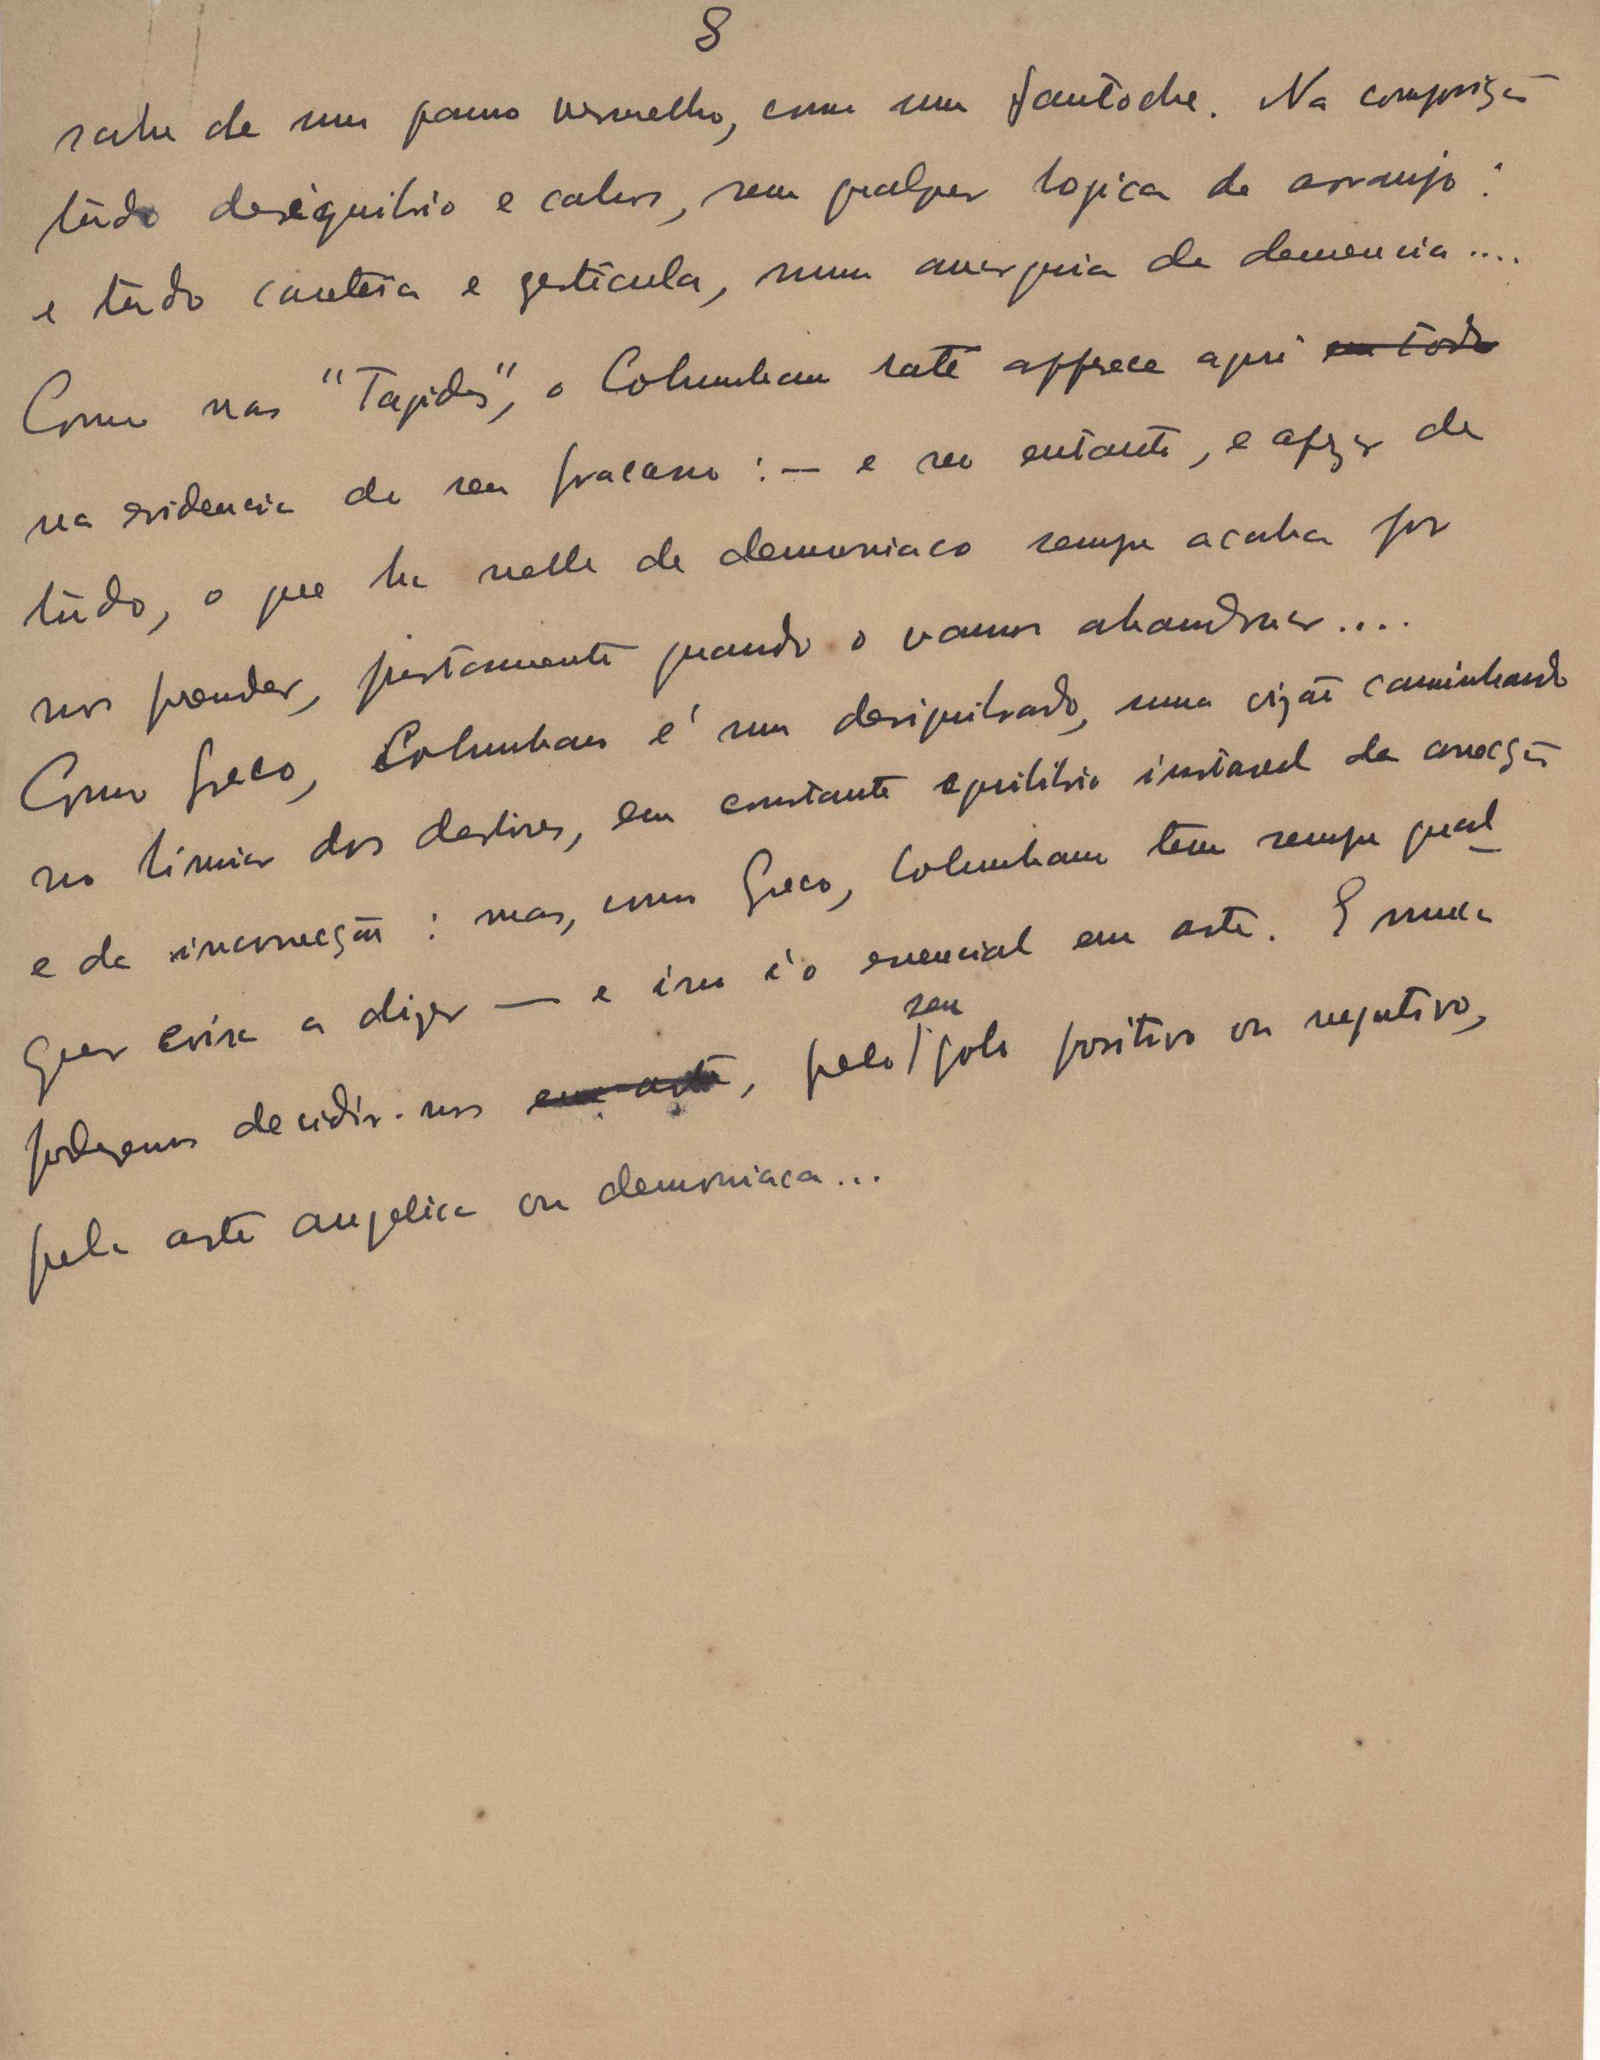 8
sahe de um panno vermelho, como um fantoche. Na composição
tudo desequilibrio e cahos, sem qualquer logica de arranjo:
e tudo e gesticula, numa anarquia de demencia....
Como nas "Tagides", o Columbano raté apparece aqui em todo
na evidencia do seu fracasso:— e no entanto, e apezar de
tudo, o que ha nelle de demoniaco sempre acaba por
nos prender, justamente quando o vamos abandonar....
Como Greco, Columbano é um desiquilibrado, uma caminhando
no limiar dos destinos, em constante equilibrio instavel da correcção
e da incorrecção: mas, como Greco, Columbano tem sempre qual
quer coisa a dizer — e isso é o essencial em arte. E nunca
poderemos decidir-nos em arte, pelo seu polo positivo ou negativo,
pela arte angelica ou demoniaca...